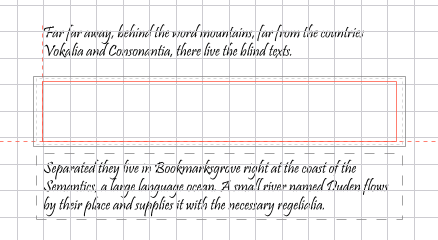 Far far away, behind the word mountains, far from the countries
Vokalia and Consonantia, there live the blind texts.
Separated they live in Bookmarksgrove right at the coast of the
Semantics, a large language ocean. A small river named Duden flows
by their place and supplies it with the necessary regelialia.